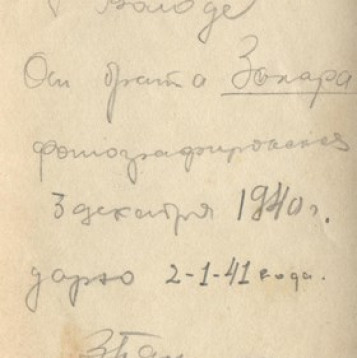 Володе
От брата Захара
фотографировался
3 декабря 1940 г.
дарю 2-1-41 года.